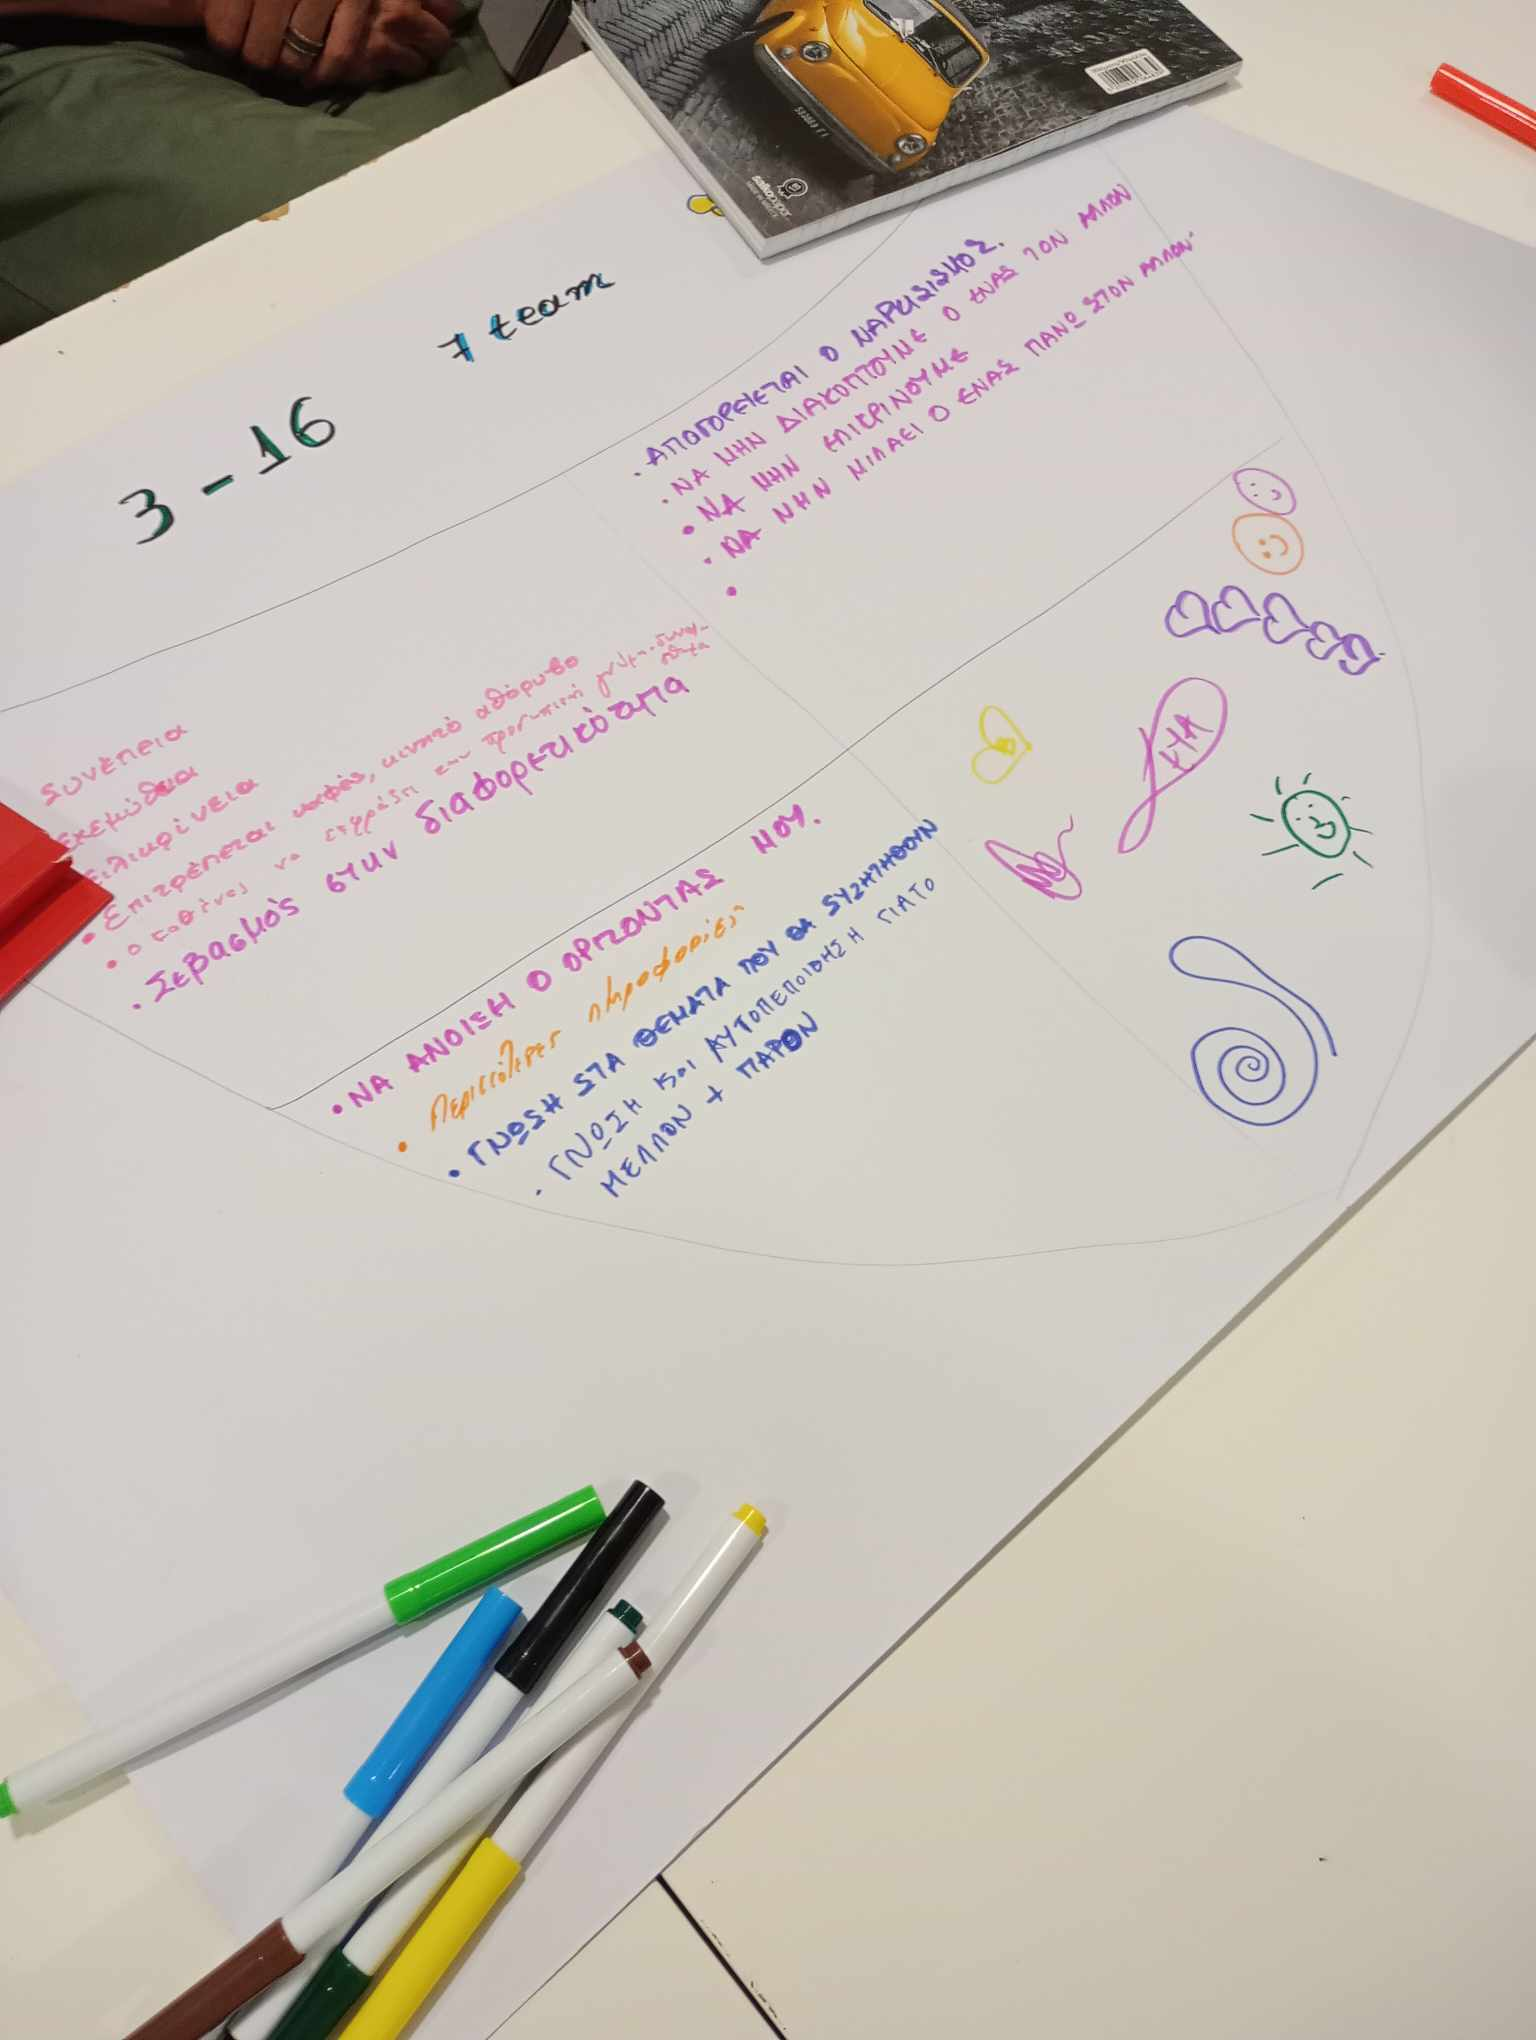 7 team
3 - 16
. ΑΠΟΓΟΡΕΥΕΤΑΙ Ο ΝΑΡΚΙΣΙΣΜΟΣ.
. ΝΑ ΜΗΝ ΔΙΑΚΟΠΤΟΥΜΕ Ο ΕΝΑΣ ΤΟΝ ΑΛΛΟΝ
• ΝΑ ΜΗΝ ΕΠΙΚΡΙΝΟΥΜΕ
. ΝΑ ΜΗΝ ΜΙΛΑΕΙ Ο ΕΝΑΣ ΠΑΝΩ ΣΤΟΝ ΑΛΛΟΝ
•
συνέπεια
εχεμύθεια
ειλικρίνεια
• Επιτρέπεται καφές, κινητό αθόρυβο
• ο καθένας να εκφράζει την προσωπική γνώμη
. Σεβασμός στην διαφορετικότητα
• ΝΑ ΑΝΟΙΞΗ Ο ΟΡΙΖΟΝΤΑΣ ΜΟΥ.
• Περισσότερες πληροφορίες
• ΓΝΩΣΗ ΣΤΑ ΘΕΜΑΤΑ ΠΟΥ ΘΑ ΣΥΖΗΤΗΘΟΥΝ
. ΓΝΩΣΗ και ΑΥΤΟΠΕΠΟΙΘΗΣΗ ΓΙΑ ΤΟ
ΜΕΛΛΟΝ + ΠΑΡΟΝ